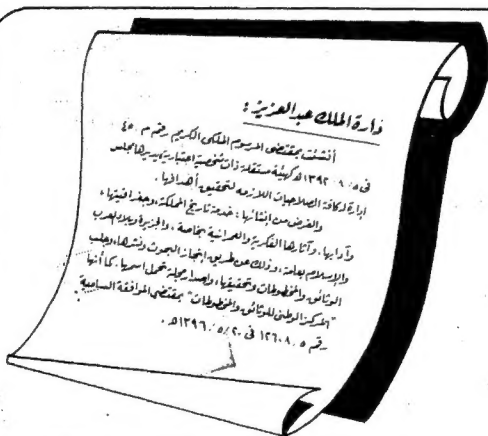 دارة الملك عبد العزيز :
أنشئت بمقتضى المرسوم الملكى الكريم رقم م / ٤٥
فى ٥ / ٨ / ١٣٩٢ هـ كهيئة مستقلة ذات شخصية اعتبارية يديرها مجلس
إدارة له كافة الصلاحيات اللازمة لتحقيق أهدافها .
والغرض من إنشائها : خدمة تاريخ المملكة ، وجغرافيتها ،
وآدابها ، وآثارها الفكرية والعمرانية بخاصة ، والجزيرة وبلاد العرب
والإسلام بعامة ، وذلك عن طريق إنجاز البحوث ونشرها ، وجلب
الوثائق والمخطوطات وتحقيقها ، وإصدار مجلة تحمل اسمها . كما أنها
"المركز الوطنى للوثائق والمخطوطات" بمقتضى الموافقة السامية
رقم ٥ / ١٢٦٠٨ فى ٢٠ / ٥ / ١٣٩٦ هـ .